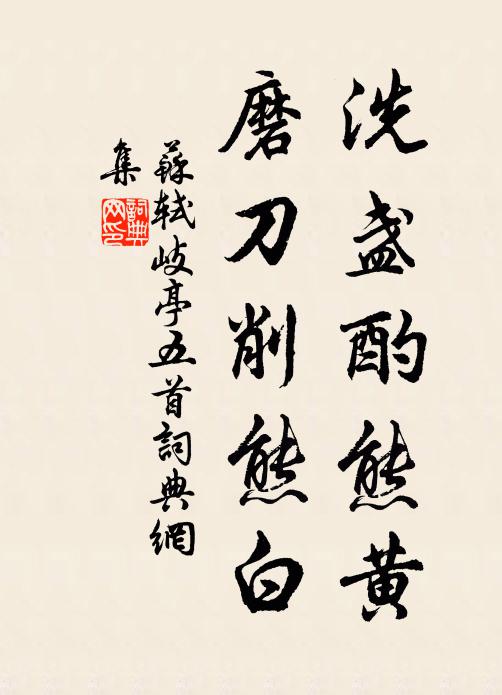 洗盏酌熊黄
磨刀削熊白
蘇軾岐亭五首詞典網
集
詞典
网印